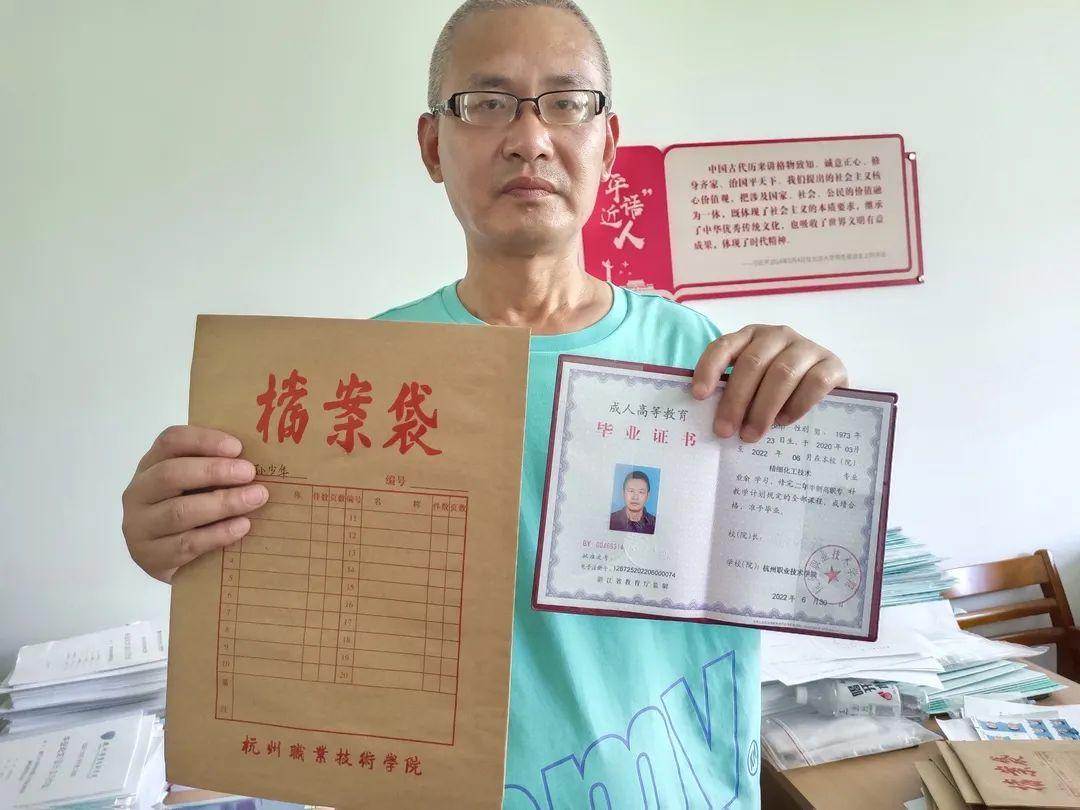 中国古代历来讲格物致知、诚意正心、修
身齐家、治国平天下。我们提出的社会主义核
心价值观，把涉及国家、社会、公民的价值融
为一体，既体现了社会主义的本质要求，继承
了中华优秀传统文化，也吸收了世界文明有益
成果，体现了时代精神。
平
"
近
语
人
档案袋
孙少华
编号
称 件数 页数 编号 名 称 件数 页数
11
12
13
14
4 15
5
6 16
7 17
8 18
9 19
10 20
备
注
杭州職業技術学院
成人高等教育
毕业证书
批准文号：
电子注册号：128725202206000074
浙江省教育厅监制
性别 男，1973年
23日生，于 2020年03月
至 2022 年 06月在本校（院）
精细化工技术 专业
业余 学习，修完二年半制高职专科
教学计划规定的全部课程，成绩合
格，准予毕业。
校（院）长：
学校（院）：杭州职业技术学院
职业技术学院
2022年 6 月30日
my
®
档案袋